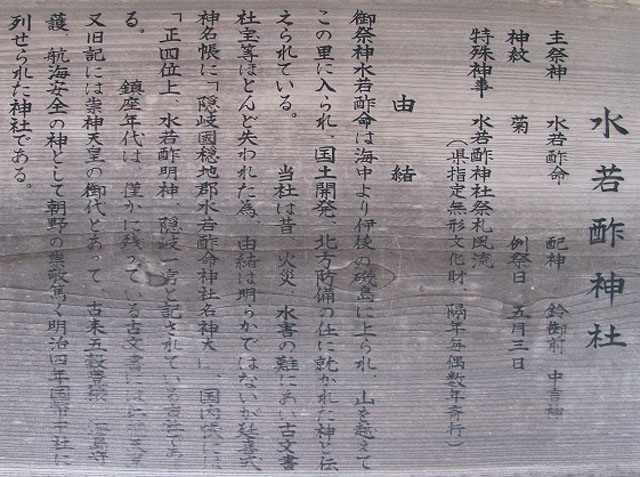 水若酢神社
主祭神　水若酢命　配神　鈴御前　中言神
神紋　菊　例祭日　五月三日
特殊神事　水若酢神社祭礼風流
（県指定無形文化財、隔年毎偶数年斉行）
由緒
御祭神水若酢命は海中より伊後の磯島に上られ、山を越えて
この里に入られ、国土開発、北方防備の任に就かれた神と伝
えられている。　当社は昔　火災、水害の難にあい古文書
社宝等ほとんど失われた為、由緒は明らかではないが延喜式
神名帳に「隠岐國穏地郡水若酢命神社名神大」、国内帳には
「正四位上、水若酢明神、隠岐一宮と記されている古社であ
る。　鎮座年代は、僅かに残っている古文書には
又旧記には崇神天皇の御代とあって、古来五穀豊穣
護、航海安全の神として朝野の崇敬篤く明治四年国幣中社に
列せられた神社である。